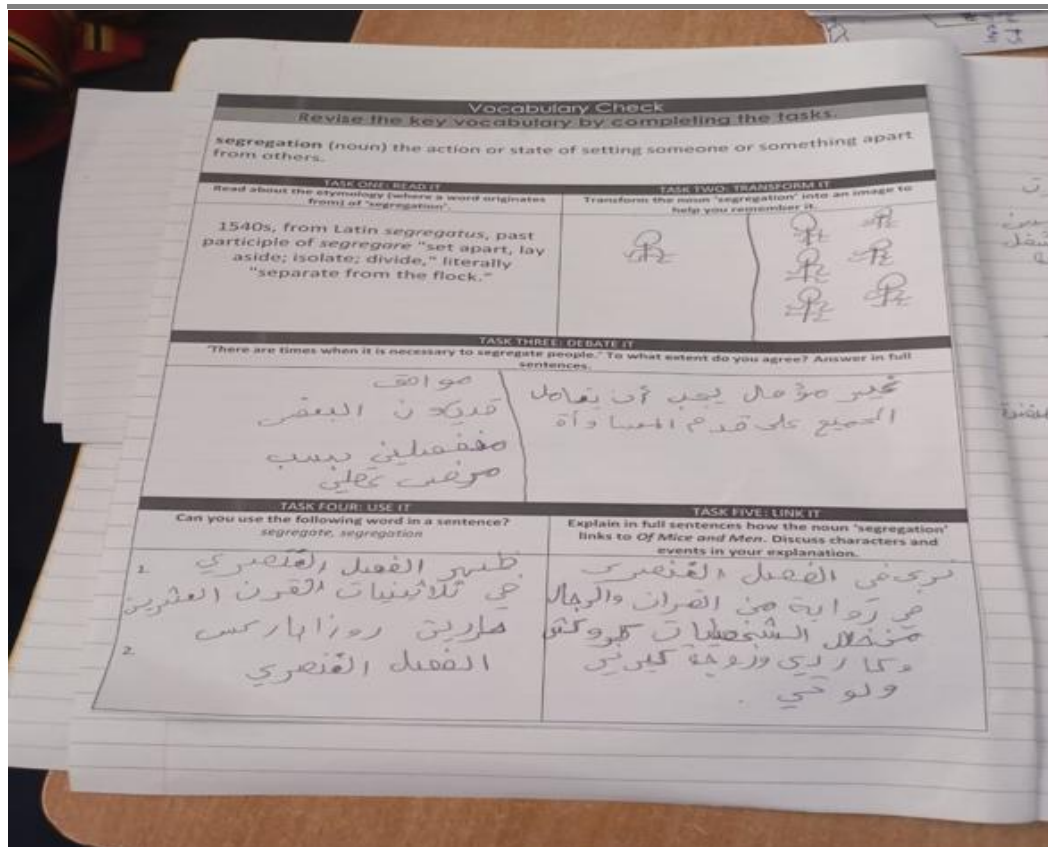 Vocabulary Check
Revise the key vocabulary by completing the tasks.
segregation (noun) the action or state of setting someone or something apart
from others.
TASK ONE: READ IT
Read about the etymology (where a word originates
from) of 'segregation'.
1540s, from Latin segregatus, past
participle of segregare "set apart, lay
aside; isolate; divide," literally
"separate from the flock."
TASK TWO: TRANSFORM IT
Transform the noun 'segregation' into an image to
help you remember it.
TASK THREE: DEBATE IT
'There are times when it is necessary to segregate people.' To what extent do you agree? Answer in full
sentences.
موافق
قد يكون البعض
منفصلين بسبب
مرض عقلي
غير مؤهال يجب أن يعامل
الجميع على قدم المساواة
TASK FOUR: USE IT
Can you use the following word in a sentence?
segregate, segregation
1. ظهر الفصل العنصري
في ثلاثينيات القرن العشرين
2. حاربت روزا باركس
الفصل العنصري
TASK FIVE: LINK IT
Explain in full sentences how the noun 'segregation'
links to Of Mice and Men. Discuss characters and
events in your explanation.
نرى في الفصل العنصري
في رواية من الفئران والرجال
من خلال الشخصيات كروكس
وكاردي وزوجة كيرلي
ولوني.